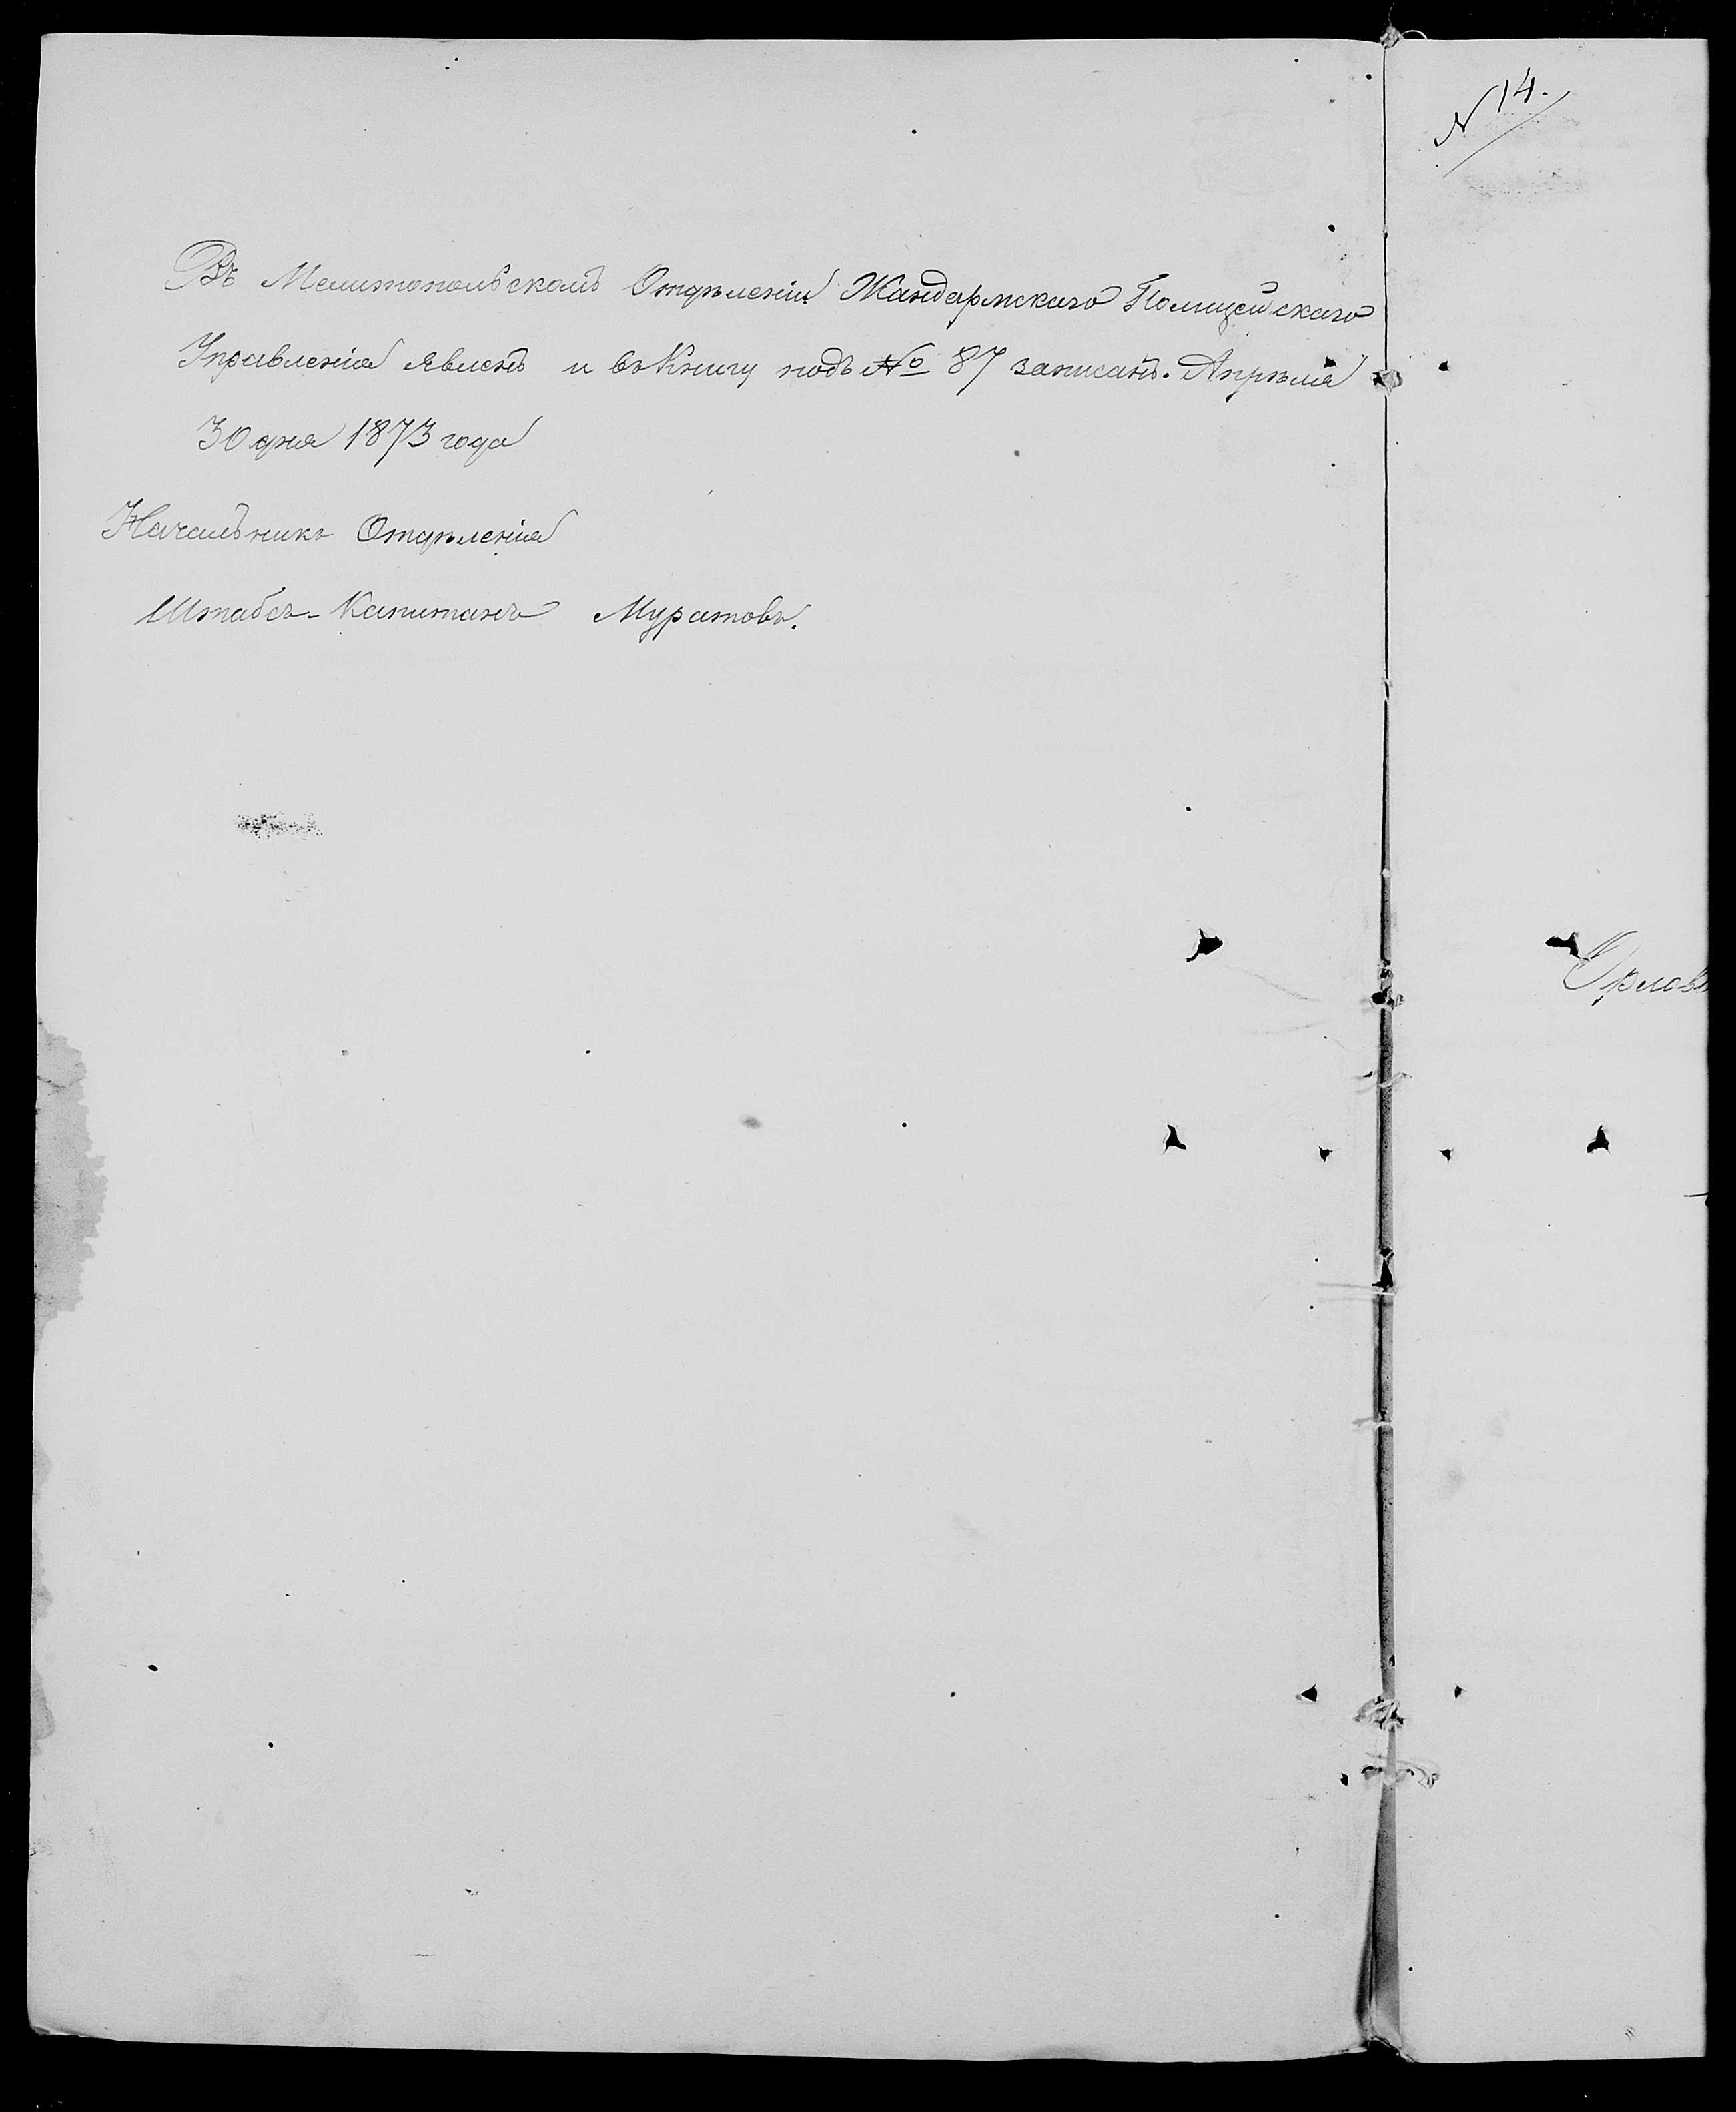 Въ Мелитопольскомъ Отдѣленіи Жандармскаго Полицейскаго
Управленія явленъ и въ Книгу подъ № 87 записанъ. Апрѣля
30 дня 1873 года
Начальникъ Отдѣленія
Штабсъ-Капитанъ Муратовъ.
N 14.
Орлов